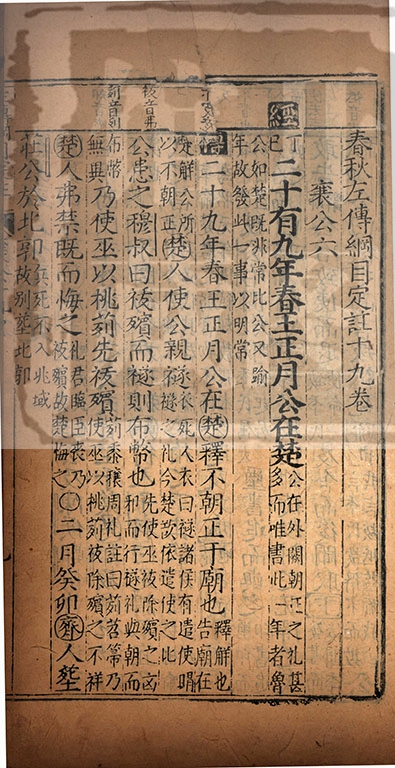 春秋左傳綱目定註十九卷
襄公六
經丁巳二十有九年春王正月公在楚公在外闕朝正之礼甚多而唯書此一年者魯
公如楚既非常比公又踰年故發此一事以明常
傳二十九年春王正月公在楚釋不朝正于廟也釋解也告廟在
楚解公所以不朝正楚人使公親襚衣死人衣曰襚諸侯有遣使賵襚之礼今楚欲依遣使之比
公患之穆叔曰祓殯而襚則布幣也先使巫祓除殯之凶邪而行襚礼與朝而
布幣無異乃使巫以桃茢先祓殯茢黍穰周礼註曰茢苕帚乃使巫以桃茢祓除殯之不祥
楚人弗禁既而悔之礼君臨臣喪乃祓殯故楚悔之〇二月癸卯齊人塟
莊公於北郭兵死不入兆域故别塟北郭
祓音弗
茢音列